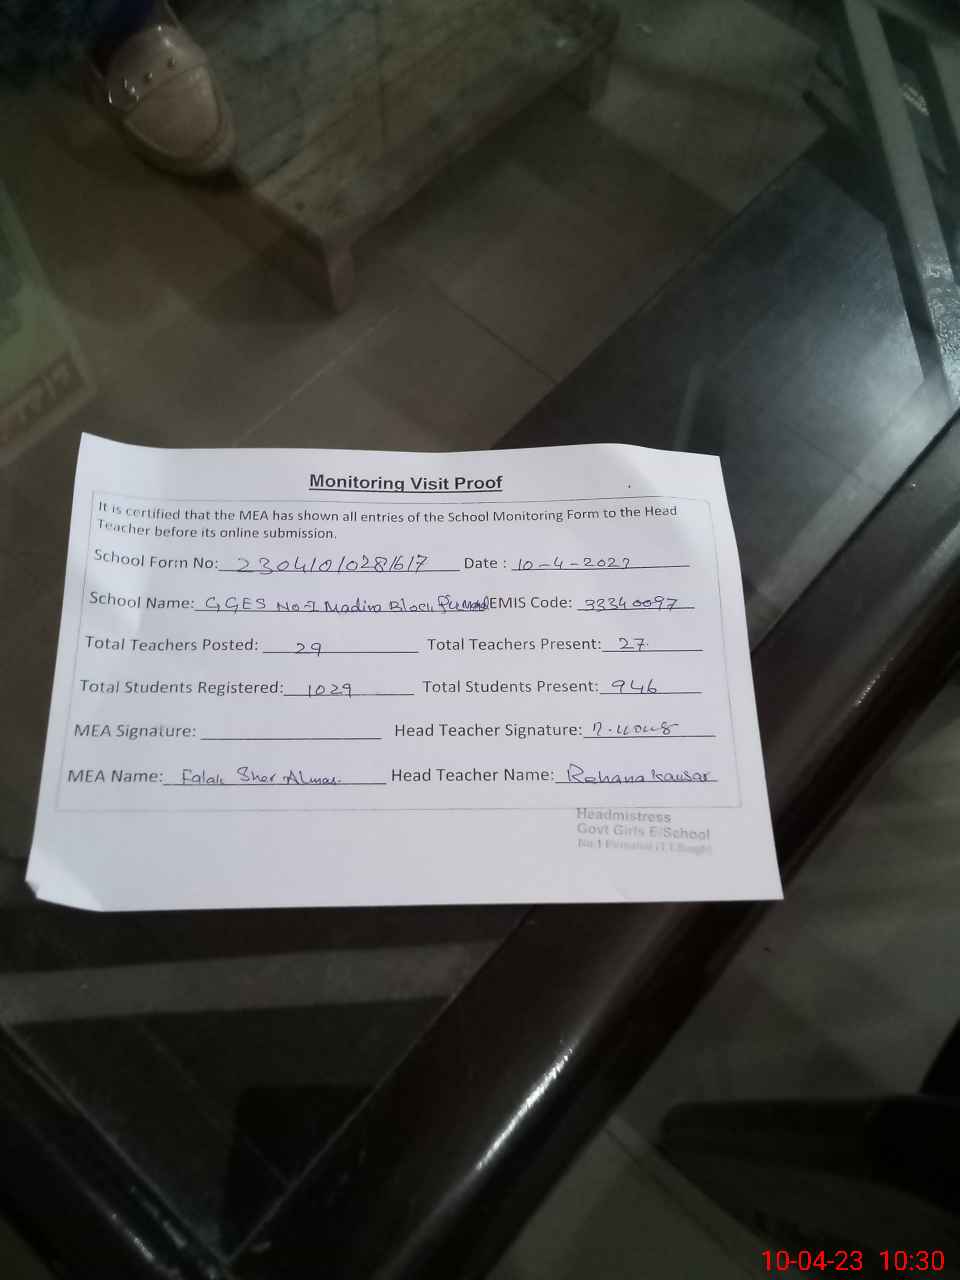 Monitoring Visit Proof
It is certified that the MEA has shown all entries of the School Monitoring Form to the Head
Teacher before its online submission.
School Form No: 23041010286167 Date : 10-4-2022
School Name: GGES No-I Madina Block EMIS Code: 33340097
Total Teachers Posted: 29 Total Teachers Present: 27
Total Students Registered: 1029 Total Students Present: 946
MEA Signature: Head Teacher Signature:
MEA Name: Falak Sher Head Teacher Name: Rehana Kausar
Headmistress
Govt Girls E/School
No.1 Pirmahal (T.T.Singh)
10-04-23 10:30